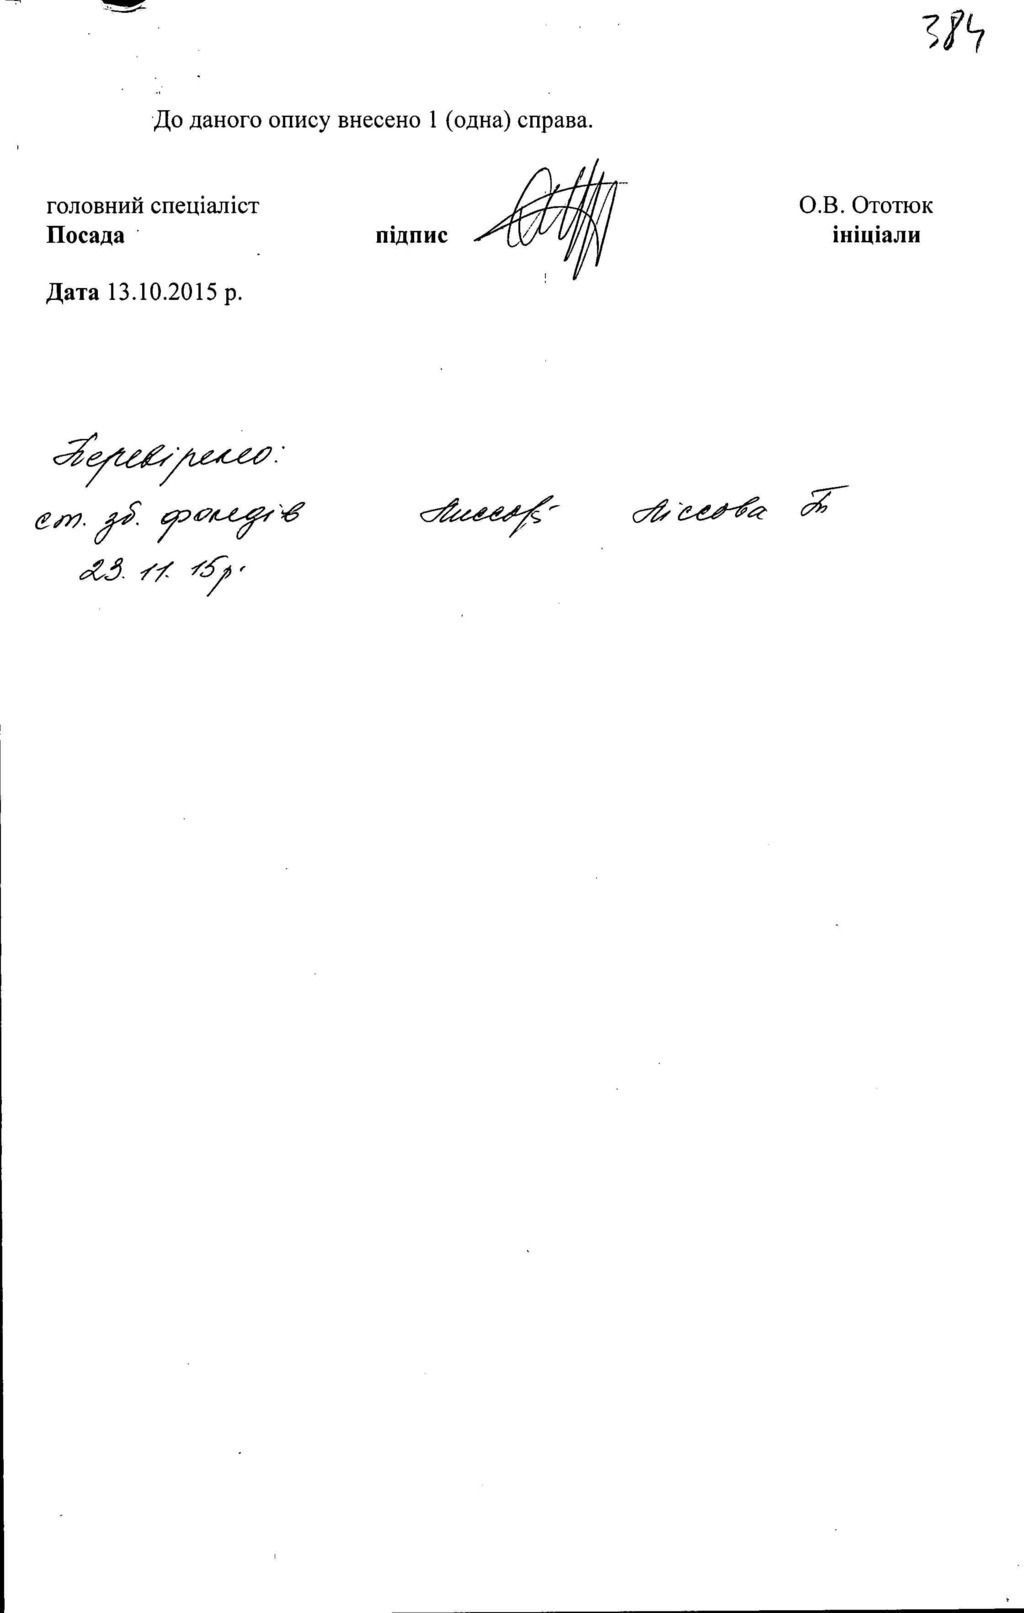 384
До даного опису внесено 1 (одна) справа.
головний спеціаліст О.В. Ототюк
Посада підпис ініціали
Дата 13.10.2015 р.
Перевірено:
ст. зб. фондів Ліссова
23. 11. 15р.